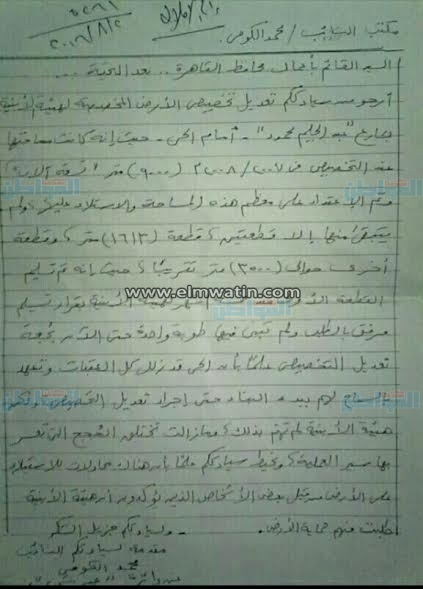 ٥٢٦١
٢٠١٦/٨/٢
مكتب النائب / محمد الكومى
السيد القائم بأعمال محافظ القاهرة .. بعد التحية ...
أرجو من سيادتكم تعديل تخصيص الأرض المخصصة لهيئة الأبنية
بشارع "عبد الحليم محمود" - أمام الحى - حيث إنه كانت مساحتها
عند التخصيص فى ٢٠٠٧/٢٠٠٨ (٩٠٠٠) متر "تسعة آلاف"
وتم الإعتداء على معظم هذه المساحة والاستيلاء عليها ولم
يتبقى منها إلا قطعتين، قطعة (١٦١٣) متر، وقطعة
أخرى حوالى (٣٠٠٠) متر تقريبًا، حيث انه تم تسليم
القطعة لهيئة الأبنية بقرار تسليم
مرفق بالطلب ولم تبنى فيها طوبة واحدة حتى الآن بحجة
تعديل التخصيص علمًا بأن الحى قد ذلل كل العقبات وتعهد
بالسماح لهم ببدء البناء حتى إجراء تعديل التخصيص ولكن
هيئة الأبنية لم تهتم بذلك، ومازالت تختلق الحجج التى تعسر
بها سير العملية، ونحيط سيادتكم علمًا بأن هناك محاولات للاستيلاء
على الأرض من قبل بعض الأشخاص الذين يؤكدون أن هيئة الأبنية
طلبت منهم حماية الأرض.
- ولسيادتكم جزيل الشكر
مقدمه لسيادتكم النائب
محمد الكومى
www.elmwatin.com
المواطن